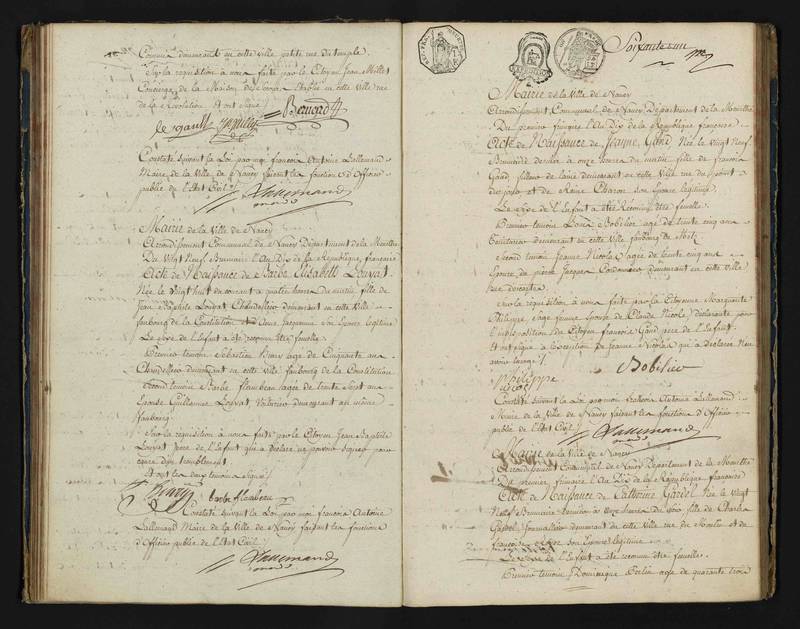 demeurant en cette ville petite rue du temple
Sur la réquisition à nous faite par le Citoyen Jean Millet
Concierge de la Maison de établie en cette Ville rue
de la Révolution. Et ont signé
Bernard
Constaté suivant la Loi par moi françois Antoine Lallemand
Maire de la Ville de Nancy faisant les fonctions d'Officier
public de l'Etat Civil
Lallemand
Mairie de la Ville de Nancy
Arrondissement Communal de Nancy Département de la Meurthe
Du Vingt Neuf Brumaire l'An Dix de la République française
Acte de Naissance de Barbe Elisabeth Louvat
Née le Vingt huit du courant à quatre heures du matin fille de
Jean Baptiste Louvat Chaudelier demeurant en cette Ville
faubourg de la Constitution et d'Anne son Epouse légitime
Le sexe de l'Enfant a été reconnu être femelle
Premier témoin Sébastien agé de Cinquante ans
Chandelier demeurant en cette Ville faubourg de la Constitution
Second témoin Barbe flambeau agée de trente sept ans
Epouse Guillaume Louvat demeurant au même
faubourg
Sur la réquisition à nous faite par le Citoyen Jean Baptiste
Louvat père de l'Enfant qui a déclaré ne pouvoir signer pour
cause d'un tremblement
Et ont les deux témoins signé
barbe flambeau
Constaté suivant la Loi par moi françois Antoine
Lallemand Maire de la Ville de Nancy faisant les fonctions
d'Officier public de l'Etat Civil
Lallemand
Soixante un
Mairie de la Ville de Nancy
Arrondissement Communal de Nancy Département de la Meurthe
Du premier frimaire l'An Dix de la République française
Acte de Naissance de Jeanne Gand Née le Vingt Neuf
Brumaire dernier à onze heures du matin fille de françois
Gand fileur de laine demeurant en cette Ville rue du
et de Reine Charon son épouse légitime
Le sexe de l'Enfant a été reconnu être femelle
Premier témoin Louis Bobilier agé de trente cinq ans
demeurant en cette Ville faubourg de Metz
Second témoin Jeanne Nicolas agée de trente cinq ans
Epouse de pierre Jacques Cordonnier demeurant en cette Ville
rue
Sur la réquisition à nous faite par la Citoyenne Marguerite
Philippe, Sage femme Epouse de Claude Nicole, déclarante pour
l'indisposition du Citoyen françois Gand père de l'Enfant
Et ont signé à l'exception de Jeanne Nicolas qui a déclaré Ne
savoir
Philippe
Bobilier
Constaté suivant la Loi par moi françois Antoine Lallemand
Maire de la Ville de Nancy faisant les fonctions d'Officier
public de l'Etat Civil
Lallemand
Mairie de la Ville de Nancy
Arrondissement Communal de Nancy Département de la Meurthe
Du premier frimaire l'An Dix de la République française
Acte de Naissance de Catherine Née le Vingt
Neuf Brumaire dernier à onze heures du soir fille de Charles
demeurant en cette Ville rue du Moulin et de
françoise son Epouse légitime
Le sexe de l'Enfant a été reconnu être femelle.
Premier témoin Dominique agé de quarante trois